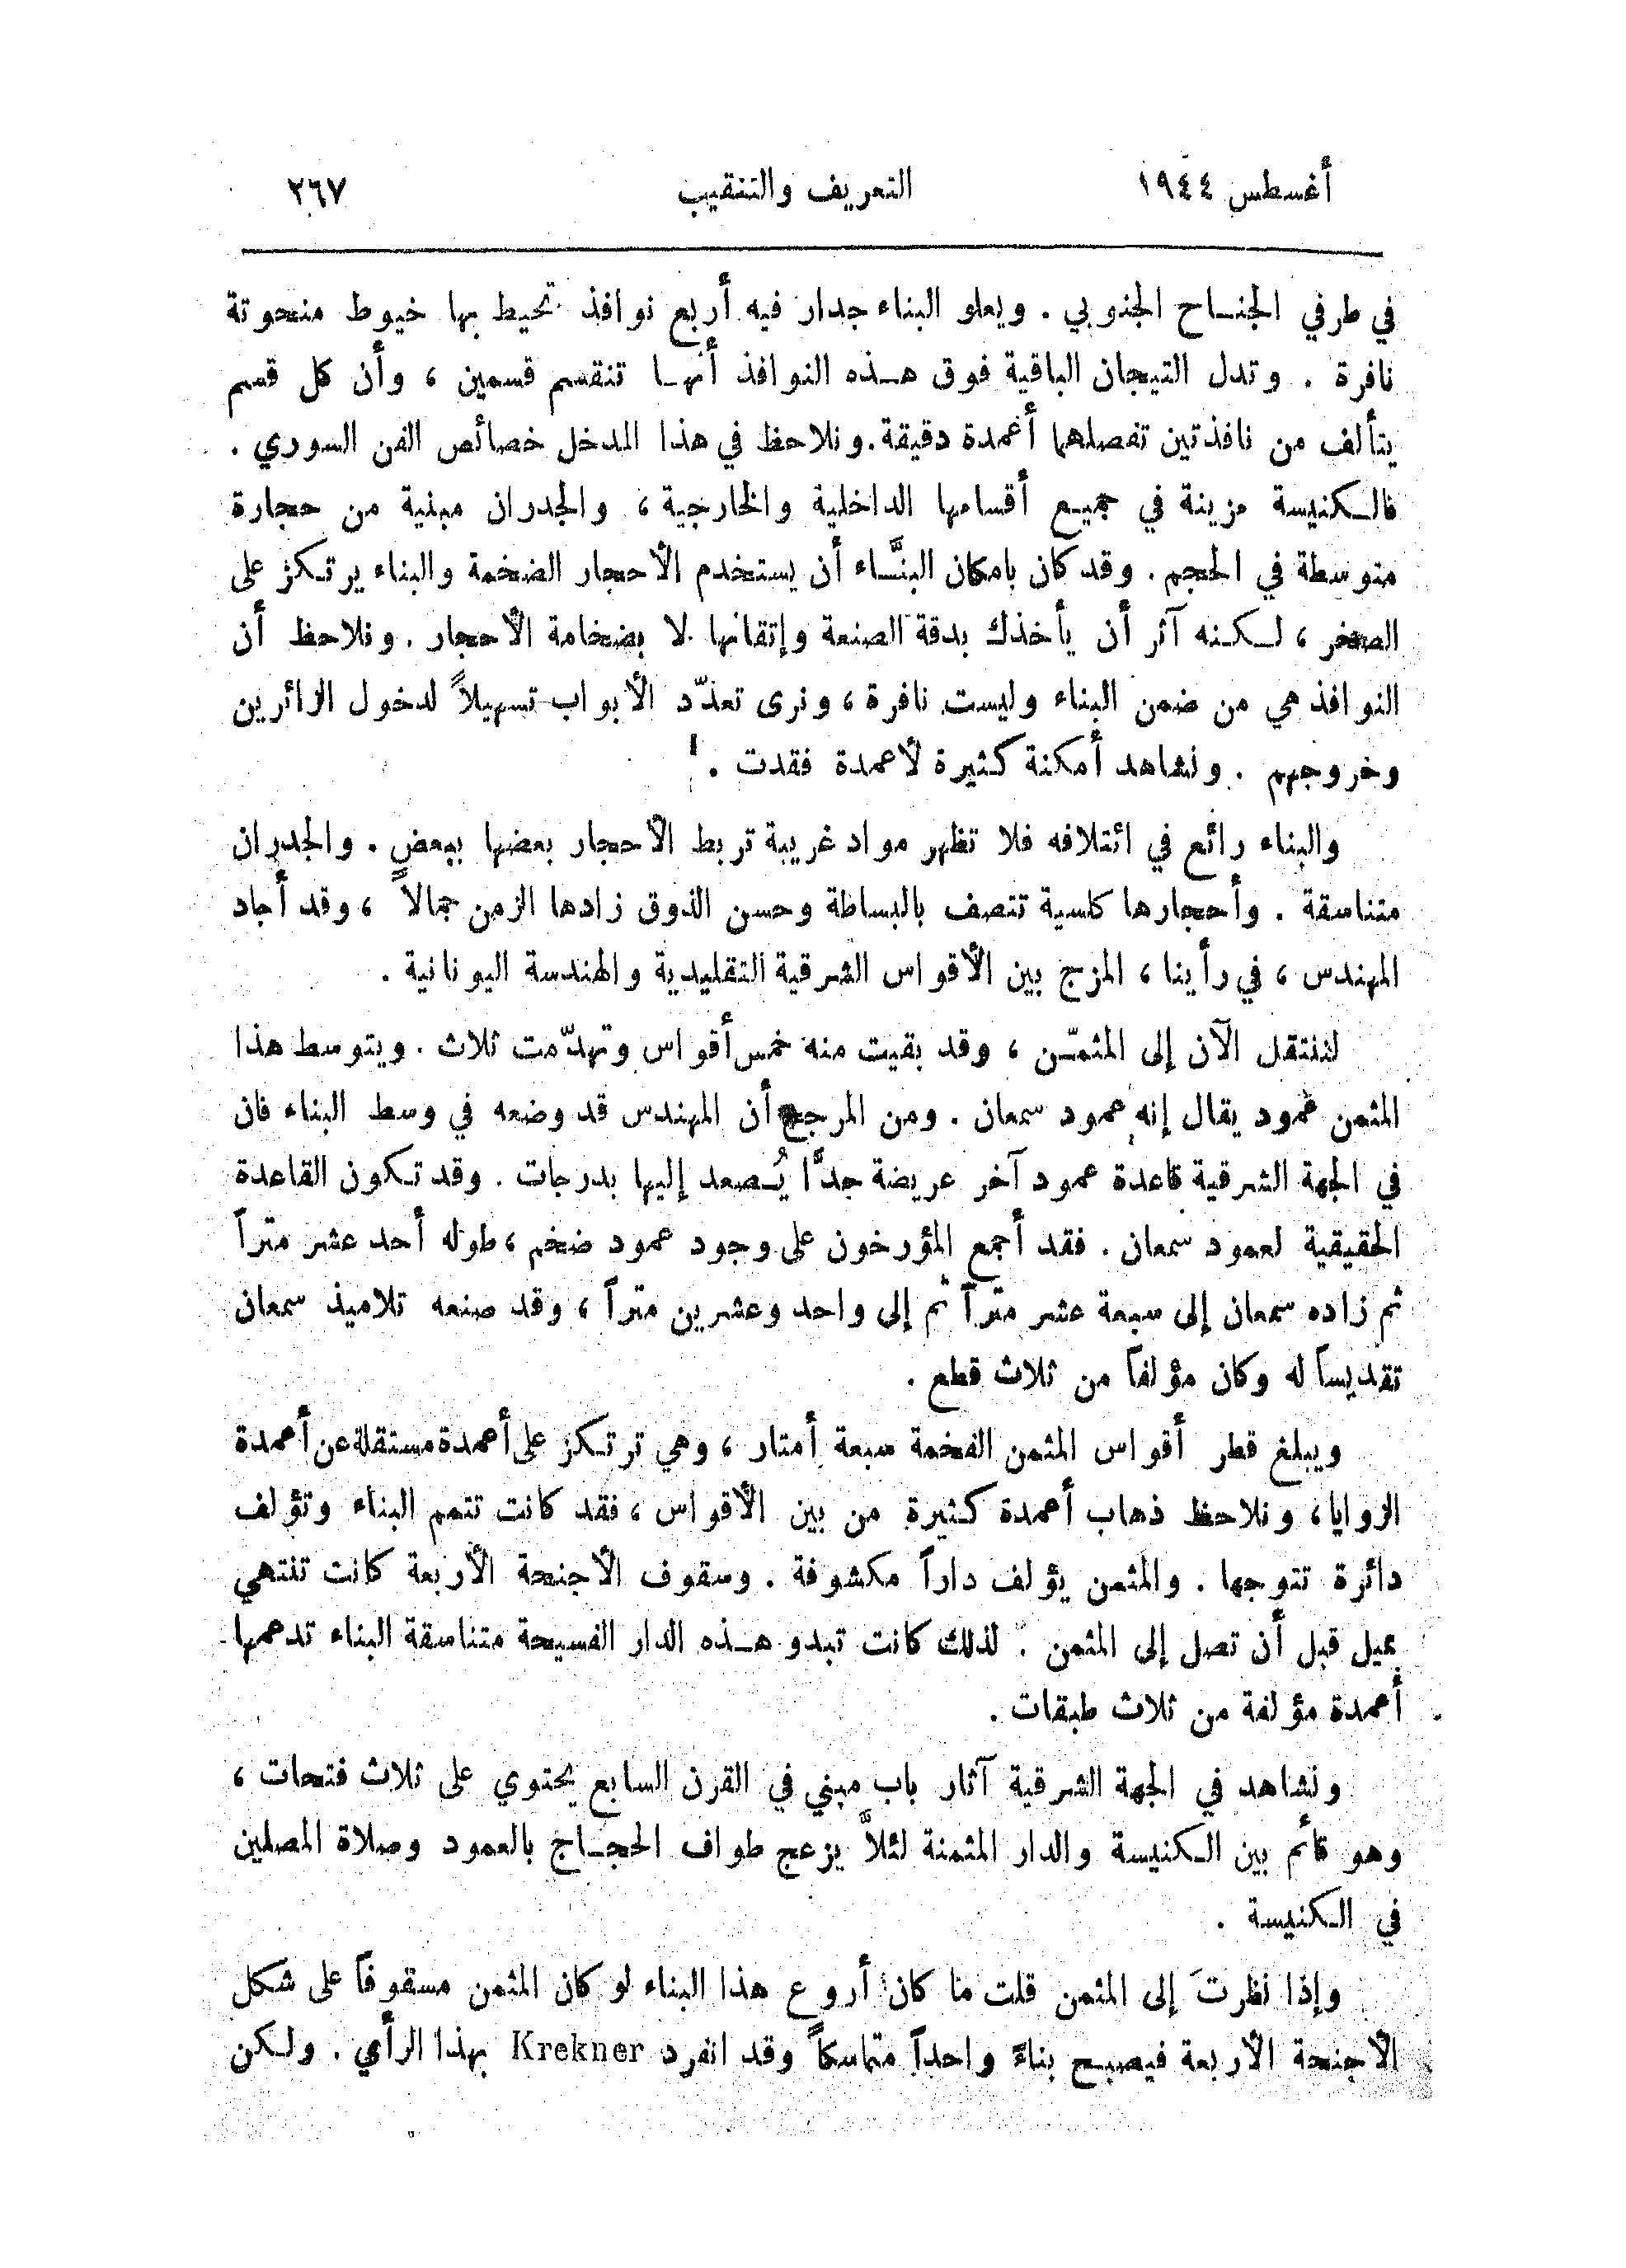 أغسطس ١٩٤٤ التعريف والتنقيب ٢٦٧
في طرفي الجناح الجنوبي . ويعلو البناء جدار فيه أربع نوافذ تحيط بها خيوط منحوتة
نافرة . وتدل التيجان الباقية فوق هذه النوافذ أنها تنقسم قسمين ، وأن كل قسم
يتألف من نافذتين تفصلهما أعمدة دقيقة . ونلاحظ في هذا المدخل خصائص الفن السوري .
فالكنيسة مزينة في جميع أقسامها الداخلية والخارجية ، والجدران مبنية من حجارة
متوسطة في الحجم . وقد كان بامكان البنَّاء أن يستخدم الأحجار الضخمة والبناء يرتكز على
الصخر ، لكنه آثر أن يأخذك بدقة الصنعة وإتقانها لا بضخامة الأحجار . ونلاحظ أن
النوافذ هي من ضمن البناء وليست نافرة ، ونرى تعدّد الأبواب تسهيلاً لدخول الزائرين
وخروجهم . ونشاهد أمكنة كثيرة لأعمدة فقدت .
والبناء رائع في ائتلافه فلا تظهر مواد غريبة تربط الأحجار بعضها ببعض . والجدران
متناسقة . وأحجارها كلسية تتصف بالبساطة وحسن الذوق زادها الزمن جمالاً ، وقد أجاد
المهندس ، في رأينا ، المزج بين الأقواس الشرقية التقليدية والهندسة اليونانية .
لننتقل الآن إلى المثمّن ، وقد بقيت منه خمس أقواس وتهدّمت ثلاث . ويتوسط هذا
المثمن عمود يقال إنه عمود سمعان . ومن المرجح أن المهندس قد وضعه في وسط البناء فان
في الجهة الشرقية قاعدة عمود آخر عريضة جدًّا يُصعد إليها بدرجات . وقد تكون القاعدة
الحقيقية لعمود سمعان . فقد أجمع المؤرخون على وجود عمود ضخم ، طوله أحد عشر متراً
ثم زاده سمعان إلى سبعة عشر متراً ثم إلى واحد وعشرين متراً ، وقد صنعه تلاميذ سمعان
تقديساً له وكان مؤلفاً من ثلاث قطع .
ويبلغ قطر أقواس المثمن الفخمة سبعة أمتار ، وهي ترتكز على أعمدة مستقلة عن أعمدة
الزوايا ، ونلاحظ ذهاب أعمدة كثيرة من بين الأقواس ، فقد كانت تتمم البناء وتؤلف
دائرة تتوجها . والمثمن يؤلف داراً مكشوفة . وسقوف الأجنحة الأربعة كانت تنتهي
بميل قبل أن تصل إلى المثمن . لذلك كانت تبدو هذه الدار الفسيحة متناسقة البناء تدعمها
أعمدة مؤلفة من ثلاث طبقات .
ونشاهد في الجهة الشرقية آثار باب مبني في القرن السابع يحتوي على ثلاث فتحات ،
وهو قائم بين الكنيسة والدار المثمنة لئلاَّ يزعج طواف الحجاج بالعمود وصلاة المصلين
في الكنيسة .
وإذا نظرتَ إلى المثمن قلت ما كان أروع هذا البناء لو كان المثمن مسقوفاً على شكل
الأجنحة الأربعة فيصبح بناءً واحداً متماسكاً وقد انفرد Krekner بهذا الرأي . ولكن